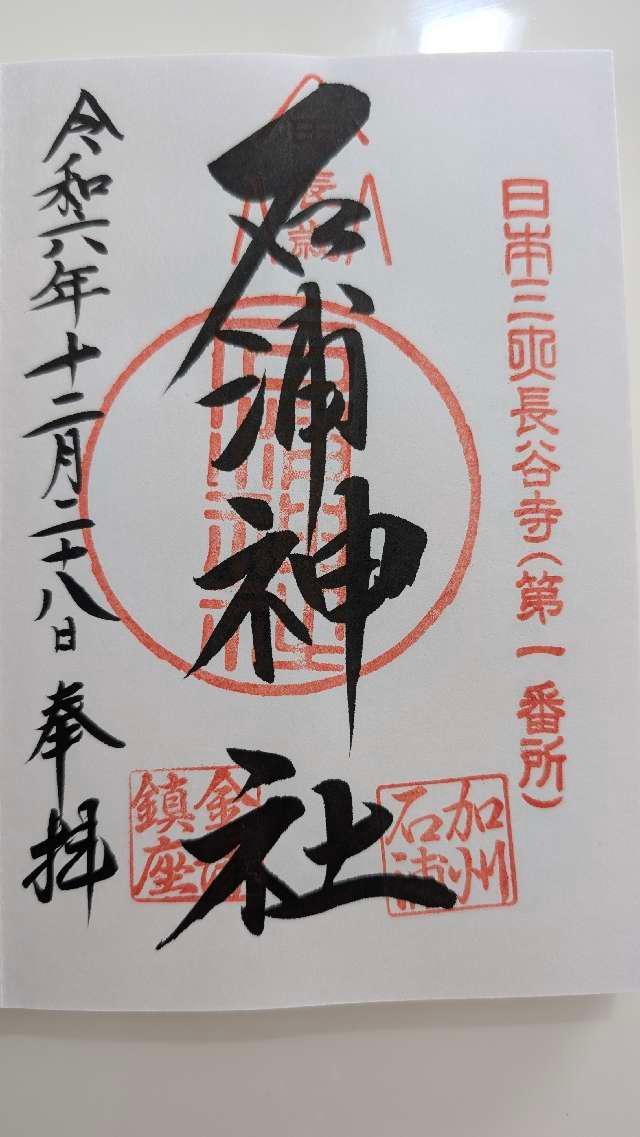 日本三所長谷寺(第一番所)
加州
石浦
石浦神社
鎮座
令和六年十二月二十八日 奉拝